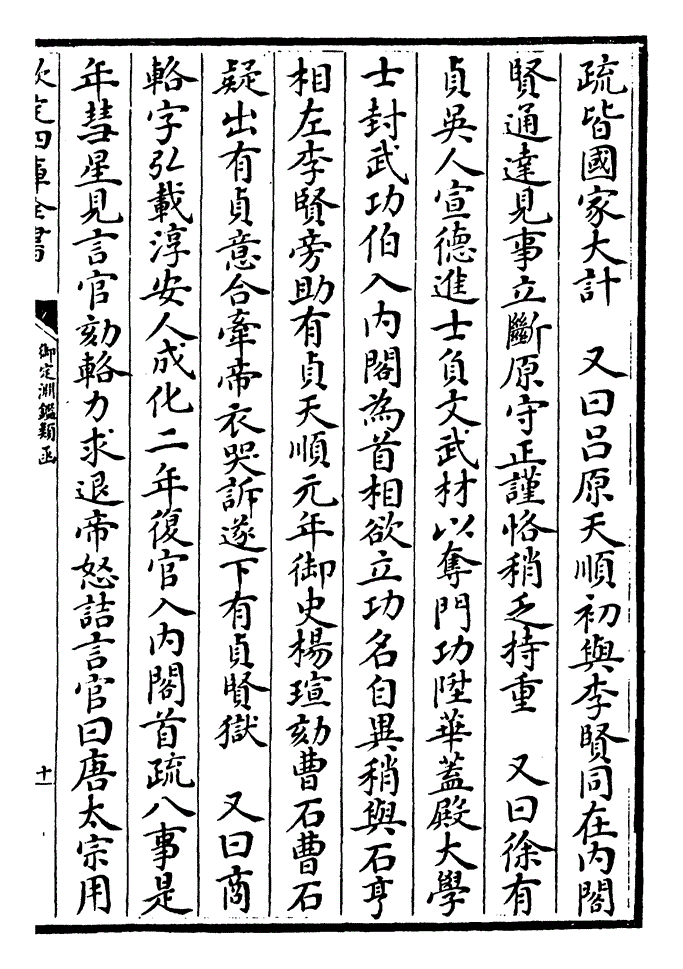 疏皆國家大計　又曰呂原天順初與李賢同在内閣
賢通達見事立斷原守正謹恪稍乏持重　又曰徐有
貞吳人宣德進士負文武材以奪門功陞華蓋殿大學
士封武功伯入内閣為首相欲立功名自異稍與石亨
相左李賢旁助有貞天順元年御史楊瑄劾曹石曹石
疑出有貞意合牽帝衣哭訴遂下有貞賢獄　又曰商
輅字弘載淳安人成化二年復官入内閣首疏八事是
年彗星見言官劾輅力求退帝怒詰言官曰唐太宗用
欽定四庫全書
御定淵鑑類函
十一